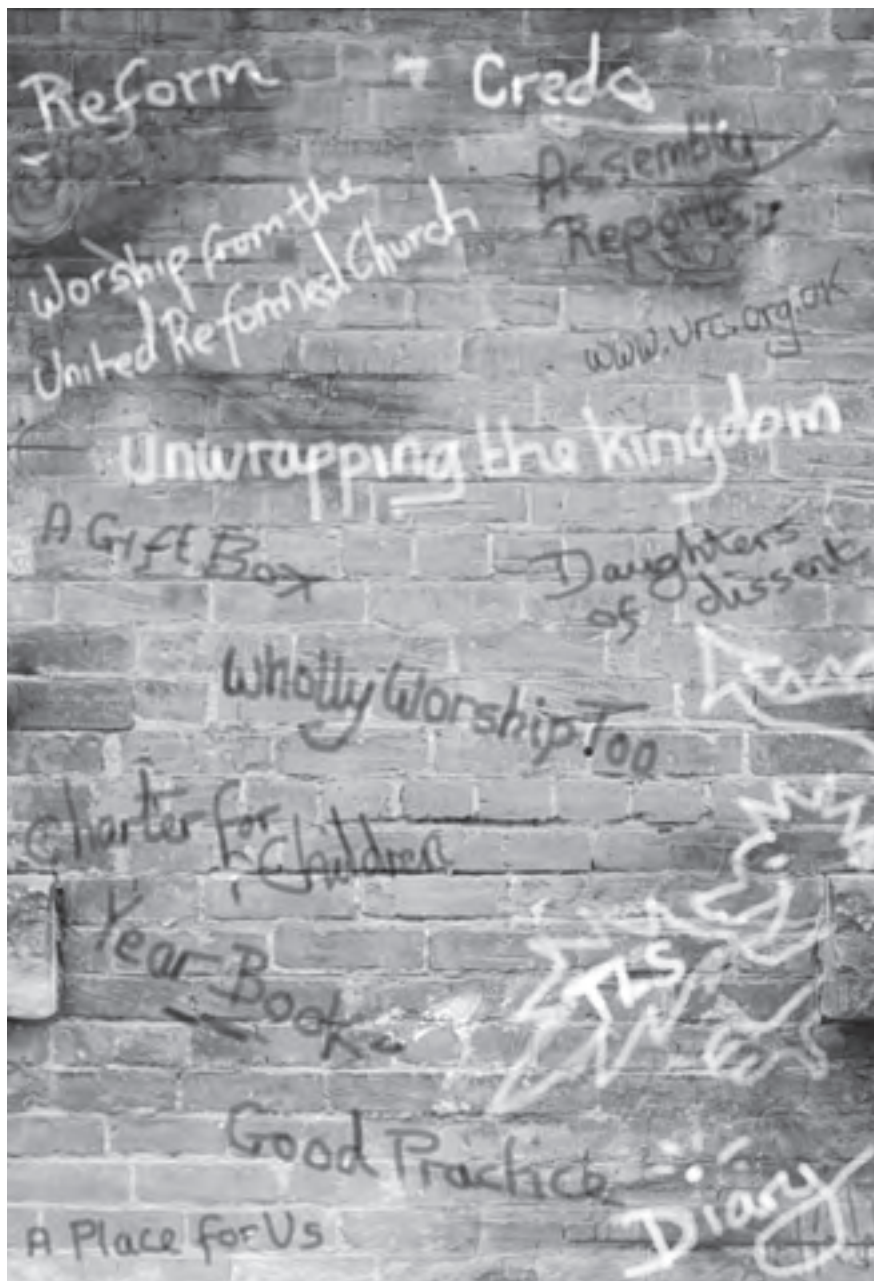 Reform
Credo
Assembly
Reports
Worship from the
United Reformed Church
www.urc.org.uk
Unwrapping the kingdom
A Gift Box
Daughters
of dissent
Wholly Worship Too
Charter for
Children
Year Book
TLS
Good Practice
Diary
A Place for Us